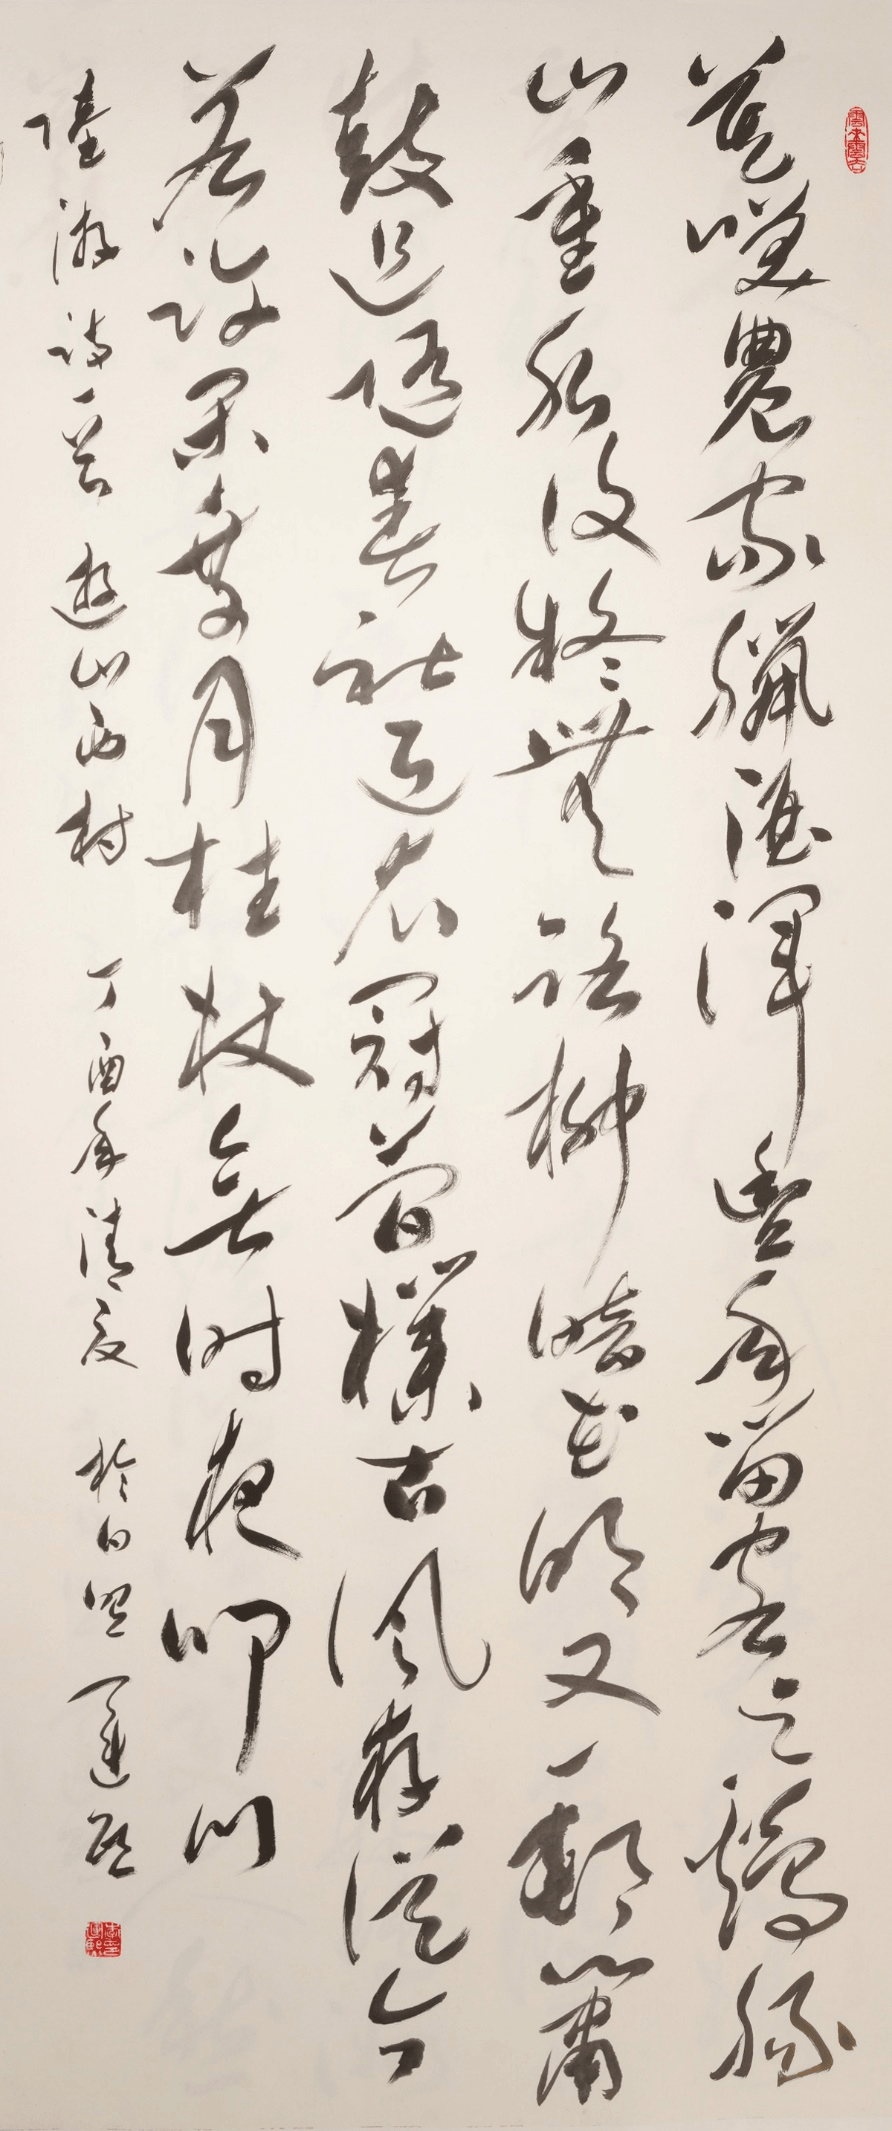 莫笑農家臘酒渾豐年留客足鷄豚
山重水複疑無路柳暗花明又一邨簫
鼓追隨春社近衣冠簡樸古風存從今
若許閑乘月拄杖無時夜叩門
陸游詩一首 遊山西村 丁酉年清夏 於白